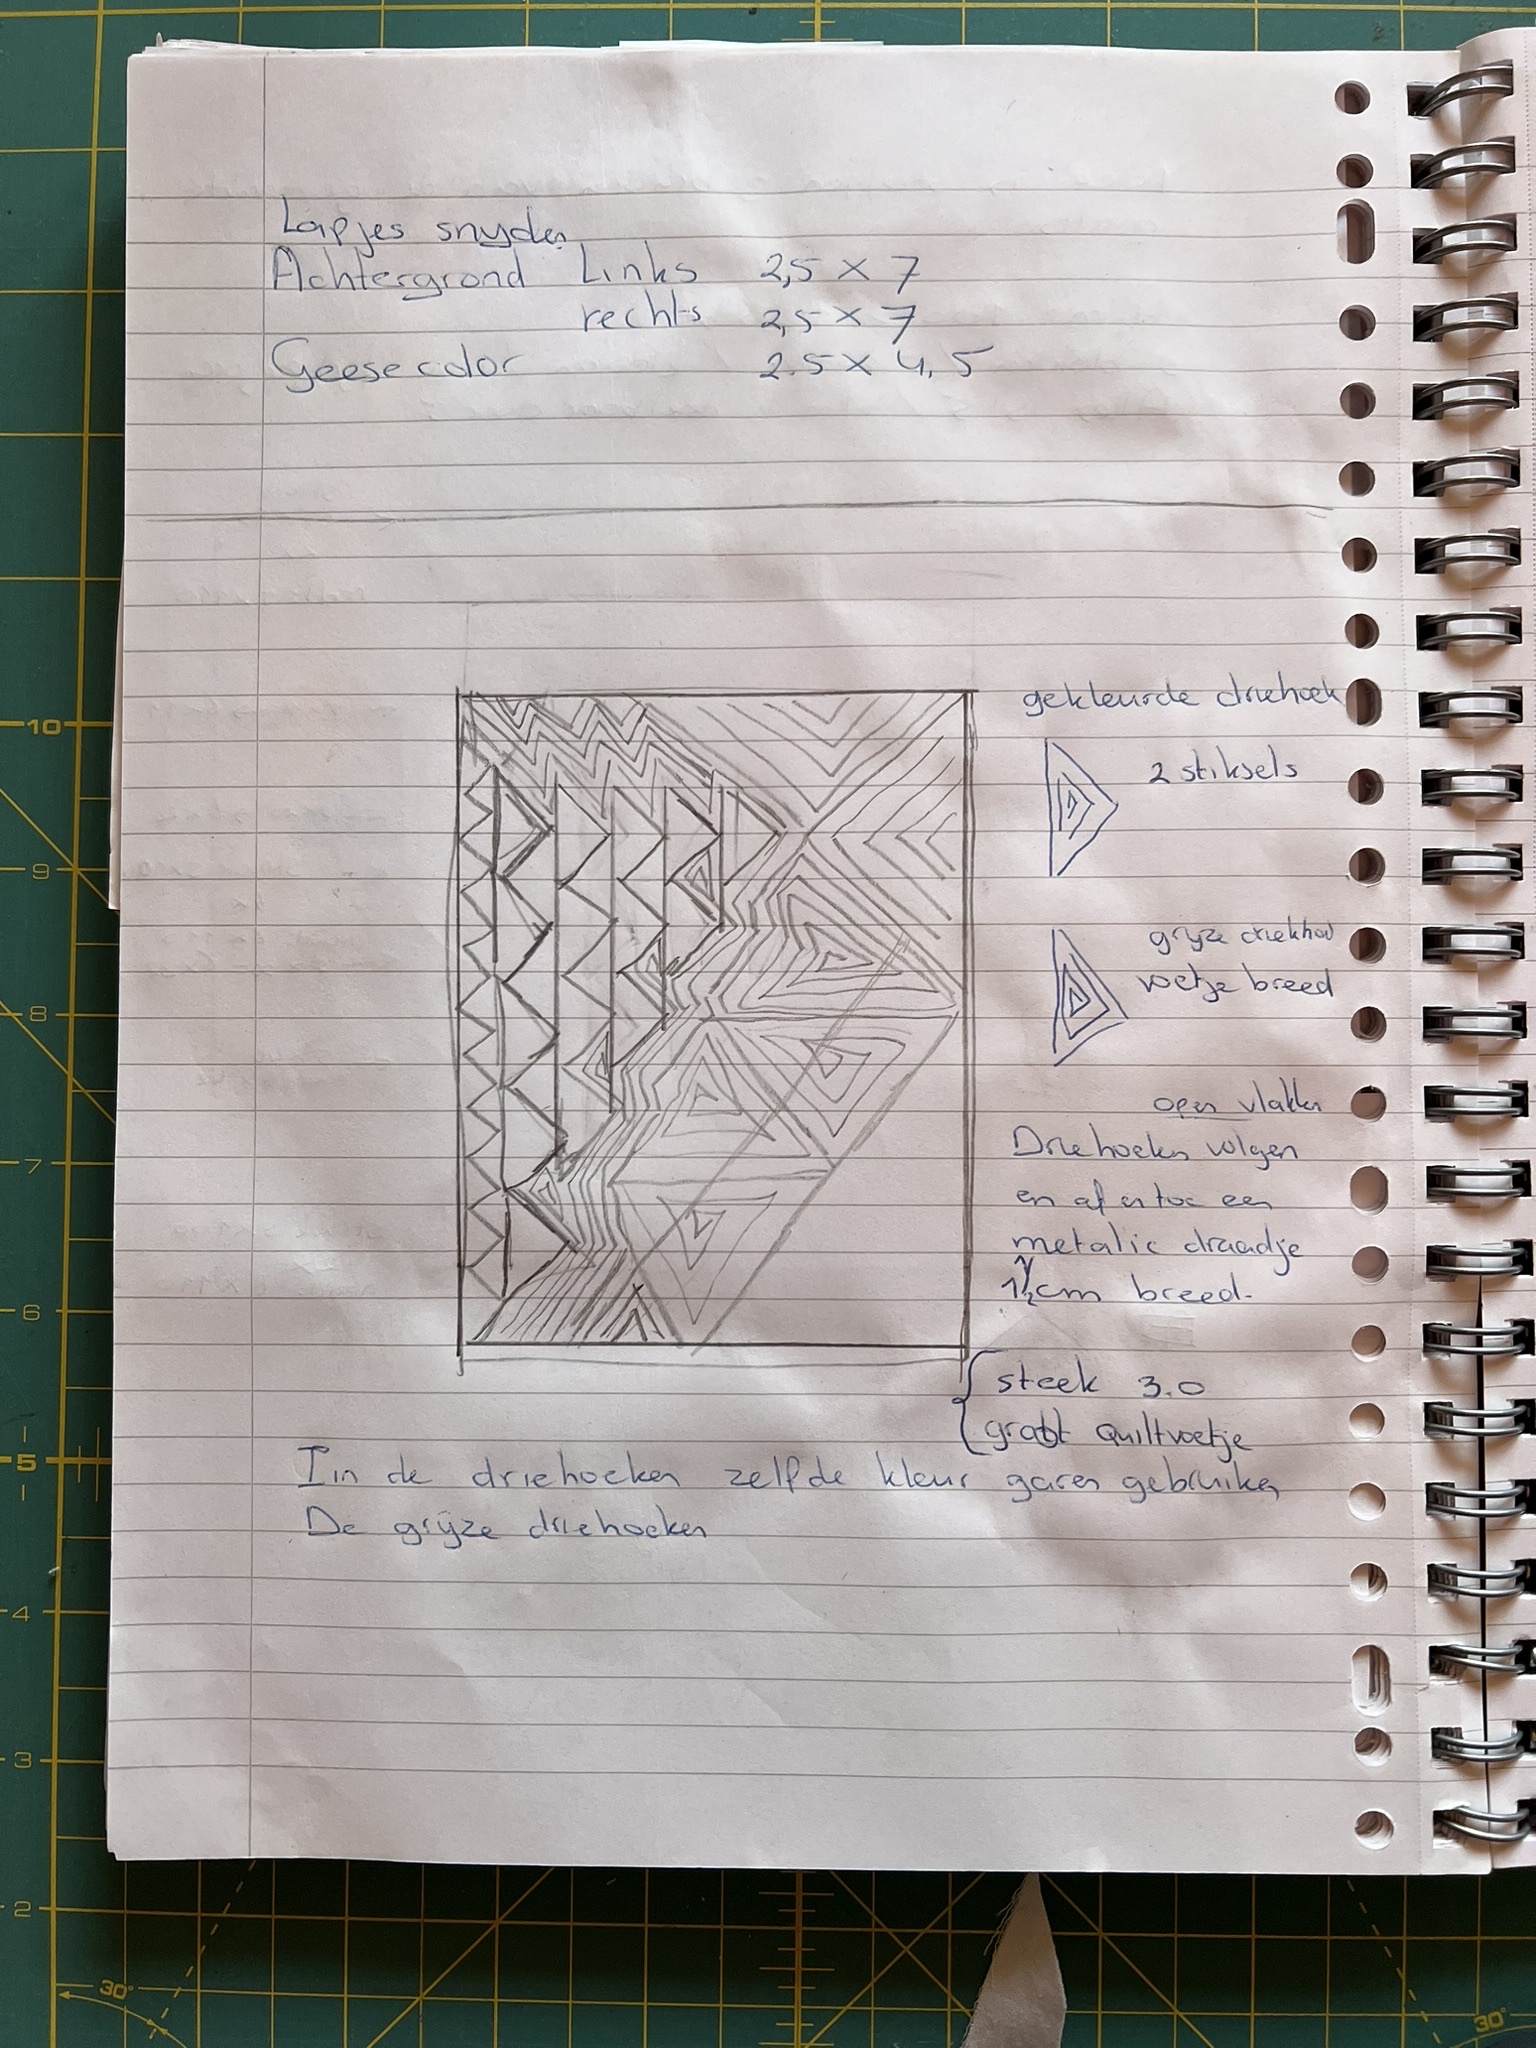 Lapjes snyden
Achtergrond Links 2,5 x 7
rechts 2,5 x 7
Geese color 2.5 x 4,5
gekleurde driehoek
2 stiksels
gryze
voetje breed
open vlakken
Driehoeken volgen
en af en toe een
metalic draadje
1 1/2 cm breed.
steek 3.0
groot quiltvoetje
Iin de driehoeken zelfde kleur garen gebruiken
De gryze driehoeken
10
9
8
7
6
5
4
3
2
30°
30°